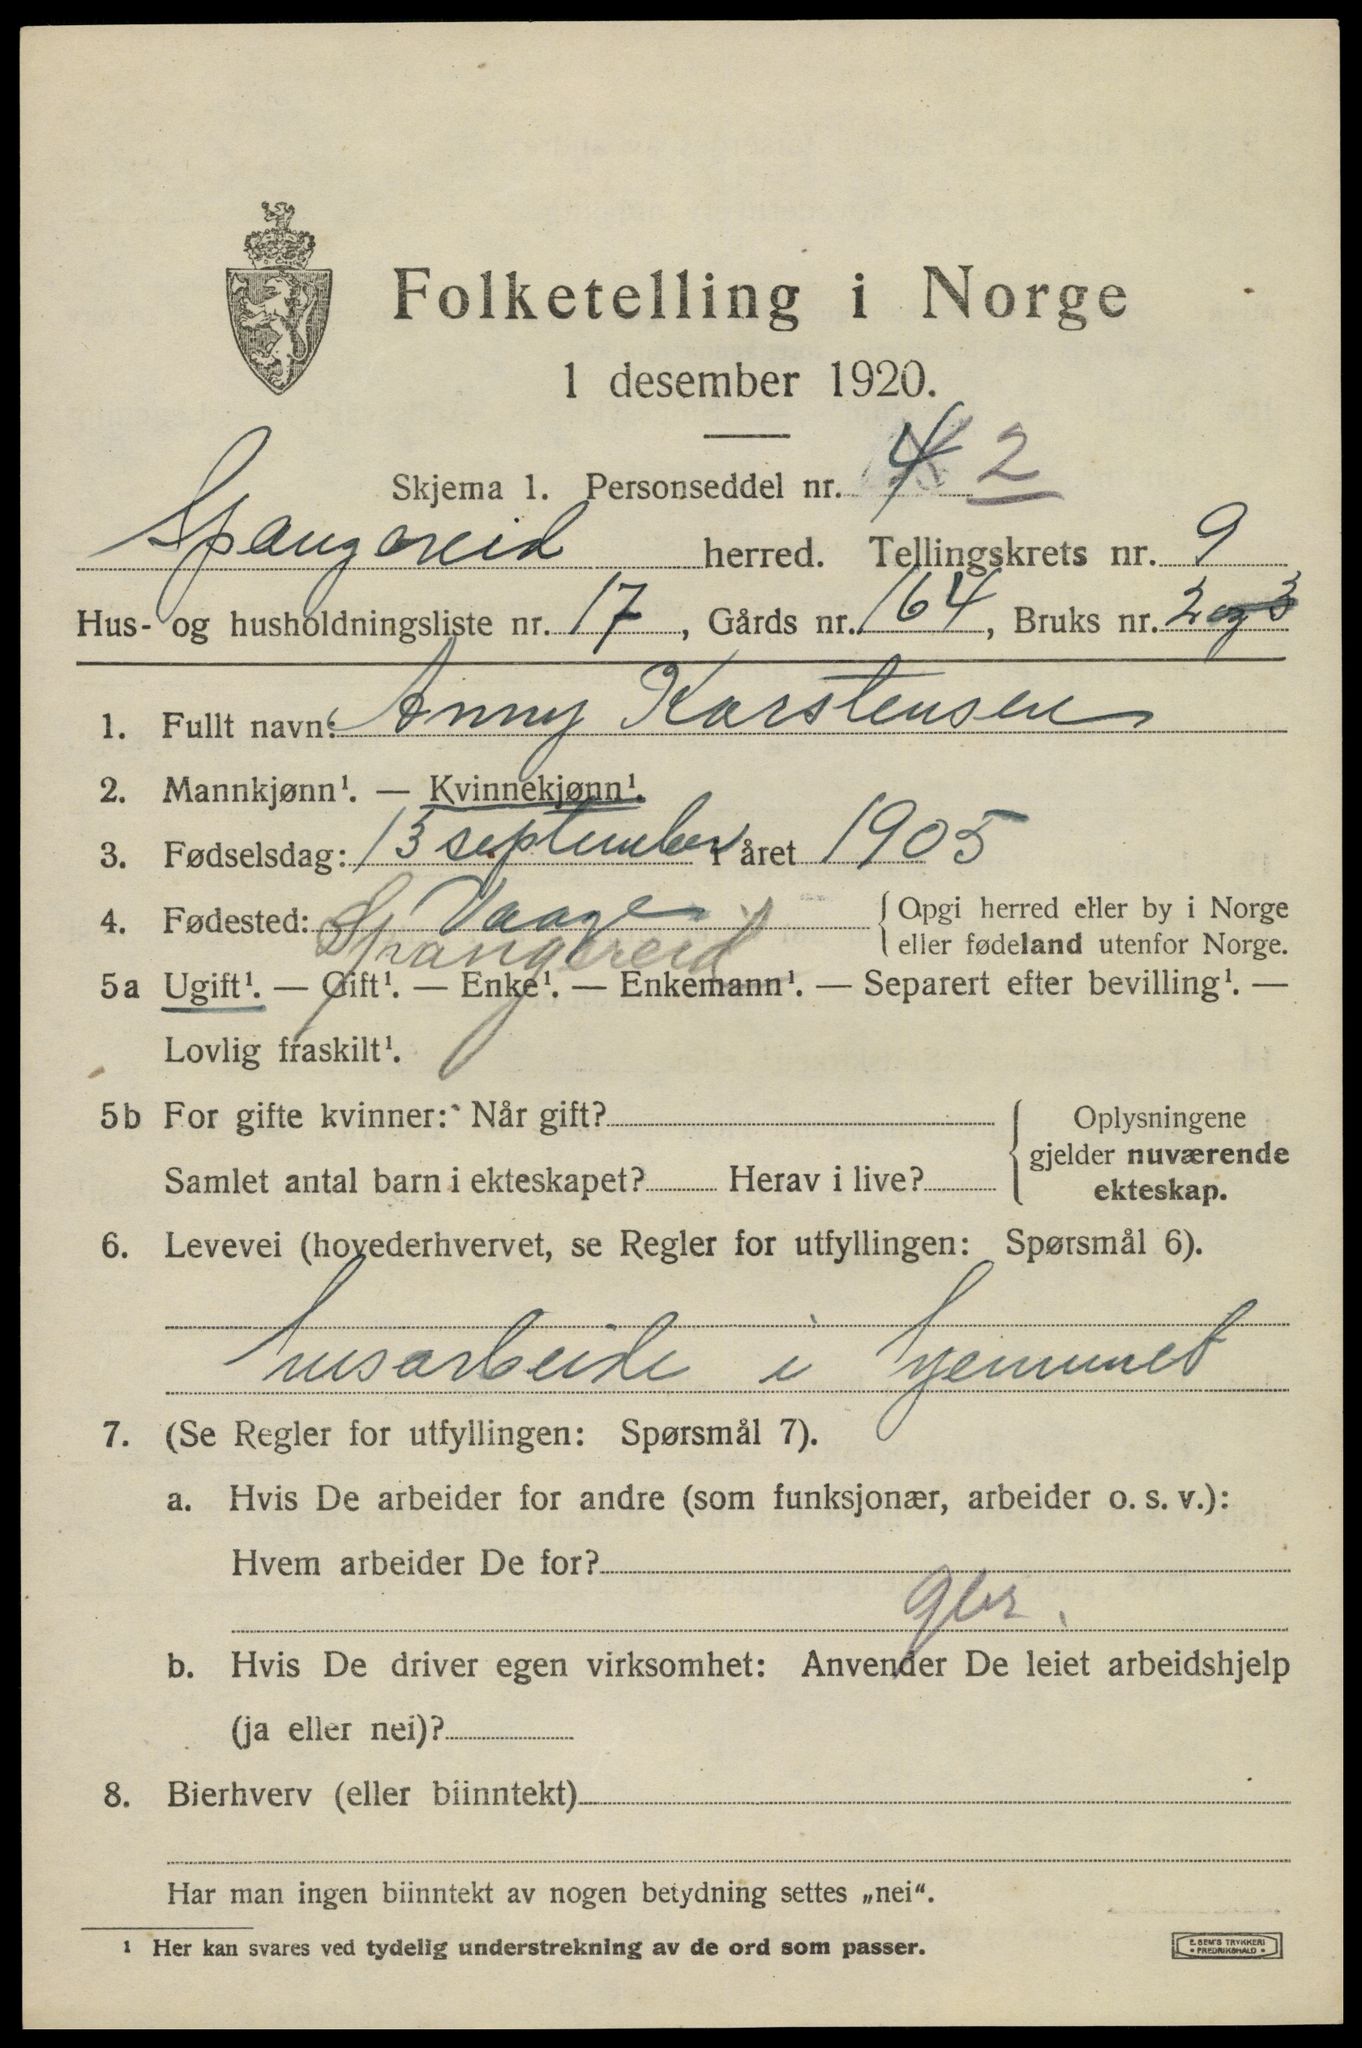 Folketelling i Norge
1 desember 1920.
Skjema 1. Personseddel nr. 4 2
Spangereid herred. Tellingskrets nr. 9
Hus- og husholdningsliste nr. 17, Gårds nr. 164, Bruks nr. 2 og 3
1. Fullt navn: Anny Karstensen
2. Mannkjønn¹. — Kvinnekjønn¹.
3. Fødselsdag: 13 september i året 1905
4. Fødested: Vaage Spangereid { Opgi herred eller by i Norge
eller fødeland utenfor Norge.
5a Ugift¹. — Gift¹. — Enke¹. — Enkemann¹. — Separert efter bevilling¹. —
Lovlig fraskilt¹.
5b For gifte kvinner: Når gift? { Oplysningene
gjelder nuværende
Samlet antal barn i ekteskapet? Herav i live? ekteskap.
6. Levevei (hovederhvervet, se Regler for utfyllingen: Spørsmål 6).
husarbeide i hjemmet
7. (Se Regler for utfyllingen: Spørsmål 7).
a. Hvis De arbeider for andre (som funksjonær, arbeider o. s. v.):
Hvem arbeider De for?
gbr.
b. Hvis De driver egen virksomhet: Anvender De leiet arbeidshjelp
(ja eller nei)?
8. Bierhverv (eller biinntekt)
Har man ingen biinntekt av nogen betydning settes „nei“.
¹ Her kan svares ved tydelig understrekning av de ord som passer.
E. SEM'S TRYKKERI
• FREDRIKSHALD •